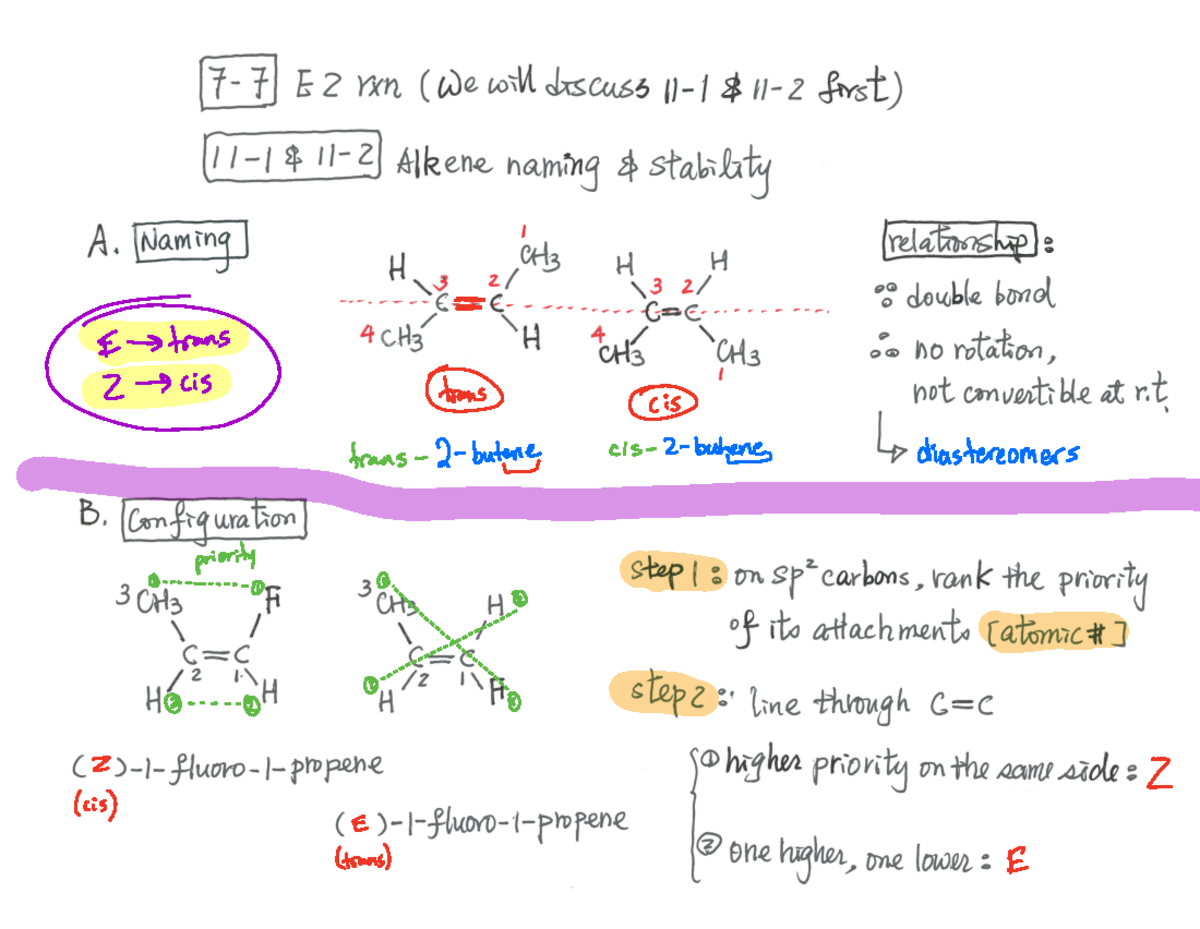 7-7 E2 rxn (We will discuss 11-1 & 11-2 first)
11-1 & 11-2 Alkene naming & stability
A. Naming
E → trans
Z → cis
H 3 2 1 CH3
C = C
4 CH3 H
trans
trans-2-butene
H 3 2 H
C=C
4 CH3 CH3
1
cis
cis-2-butene
relationship:
∵ double bond
∴ no rotation,
not convertible at r.t.
↳ diastereomers
B. Configuration
priority
3 CH3 F
C=C
2 1
H H
(Z)-1-fluoro-1-propene
(cis)
3 CH3 H
C=C
2 1
H F
(E)-1-fluoro-1-propene
(trans)
step 1: on sp² carbons, rank the priority
of its attachments [atomic #]
step 2: line through C=C
① higher priority on the same side: Z
② one higher, one lower: E